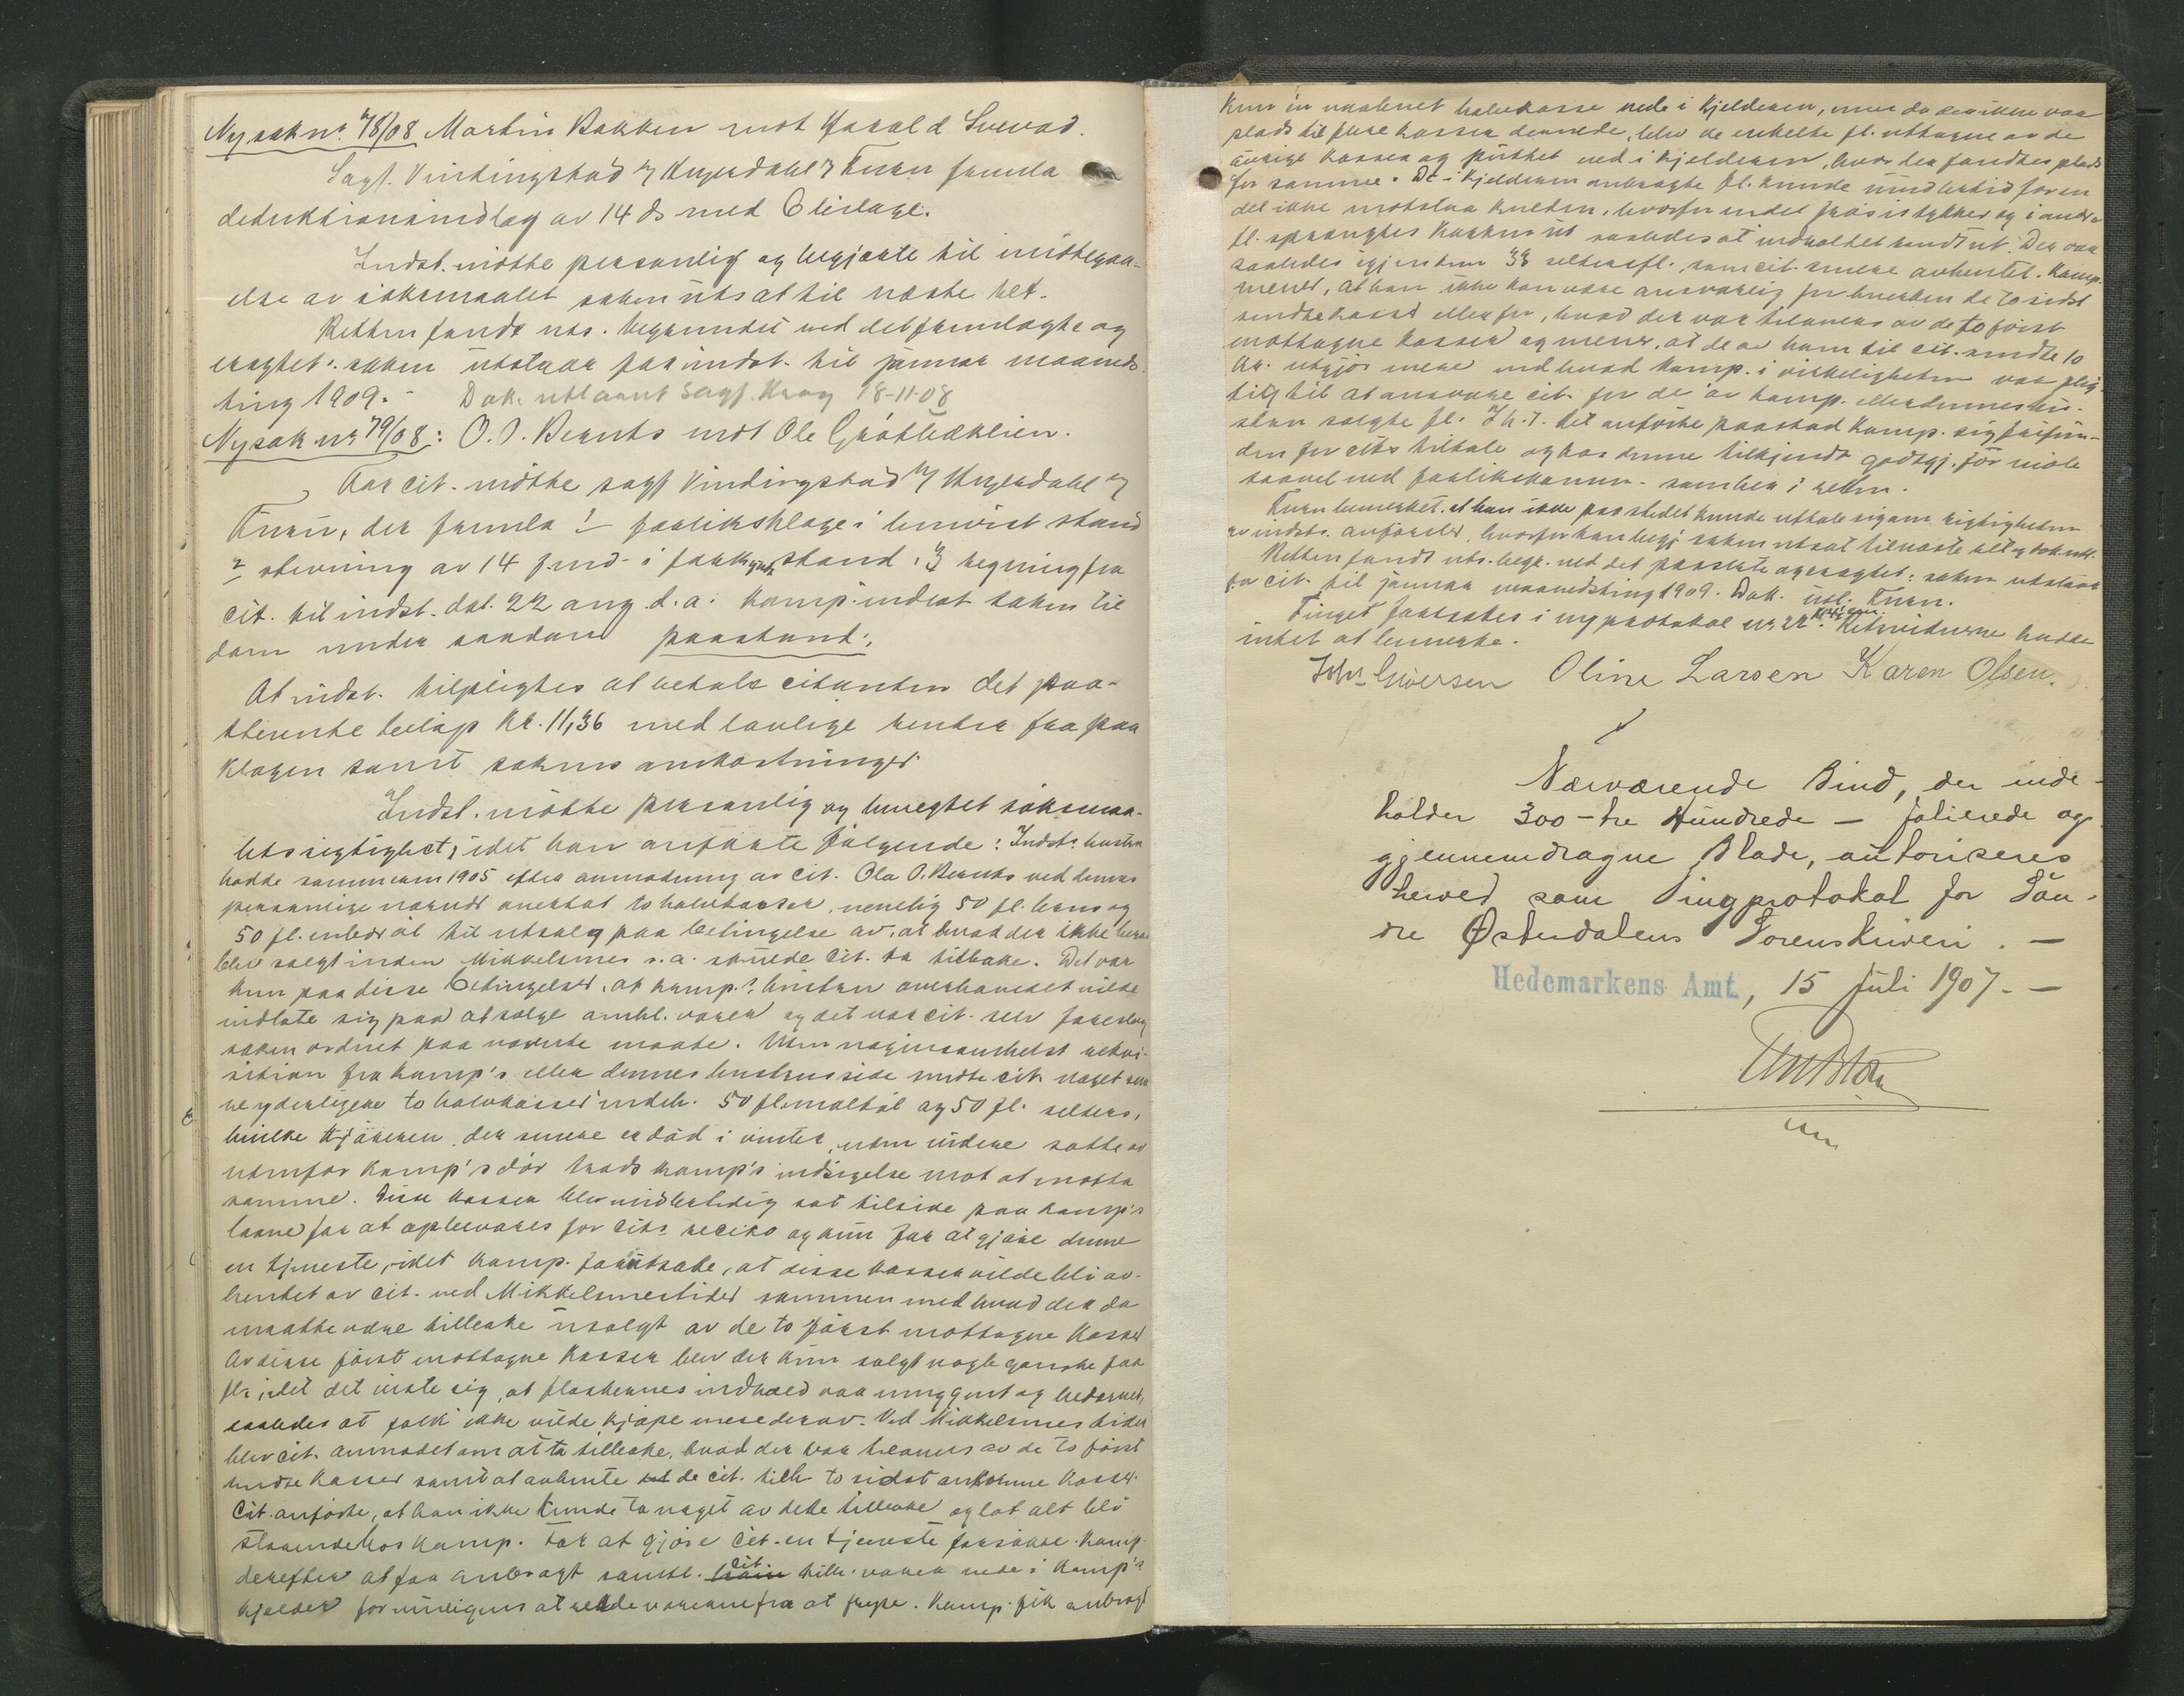 Ny sak nr. 78/08 Martin Bakken mot Harald Svevad.
Sagf. Vindingstad v/ Kuru fremla
deduktionsindlæg av 14 ds med 6 bilage.
Indst. møtte personlig og begjærte til imøtegaa-
else av søksmaalet saken utsat til næste ret.
Retten fandt uts. begrundet ved det fremlagte og
eragtet: saken utstaar for indst. til januar maaneds-
ting 1909. - Dok. utlaant sagf. Krag 18-11-08
Ny sak nr. 79/08: O. O. Bernts mot Ole Grøtbæklien.
For cit. møtte sagf. Vindingstad v/
Kuru, der fremla 1 forliksklage i henvist stand
2 stevning av 14 f. md. i forkyndt stand, 3 regning fra
cit. til indst. dat. 22 aug. d. a. Komp. indlot saken til
dom under saadan paastand:
At indst. tilpligtes at betale citanten det paa-
stevnte beløp kr. 11,36 med lovlige renter fra for
klagen samt sakens omkostninger.
Indst. møtte personlig og benegtet søksmaa-
lets rigtighet, idet han anførte følgende: Indst.s hustru
hadde sommeren 1905 efter anmodning av cit. Ola O. Bernts ved dennes
personlige nærvær overtat to halvkasser, nemlig 50 fl. brus og
50 fl. øl til utsalg paa betingelse av, at hvad der ikke
blev solgt inden Mikkelsmes s. a. skulde cit. ta tilbake. Det var
kun paa disse betingelser, at komp.s hustru overhovedet vilde
indlate sig paa at sælge omhl. varer og det var cit. selv foreslog
saken ordnet paa nævnte maate. Uten nogensomhelst rekvi-
sition fra komp's eller dennes hustrus side sendte cit. noget senere
yderligere to halvkasser indeh. 50 fl. maltøl og 50 fl. selters,
hvilke kjøreren, der senere er død i vinter, uten videre satte av
utenfor komp's dør trods komp's indsigelse mot at motta
samme. Disse kasser blev midlertidig sat tilside paa komp's
laave for at opbevares for cit.s risiko og kun for at gjøre denne
en tjeneste, idet komp. forutsatte, at disse kasser vilde bli av-
hentet av cit. ved Mikkelsmestider sammen med hvad der da
maatte være tilbake usolgt av de to først mottagne kasser
Av disse først mottagne kasser blev der kun solgt nogle ganske faa
fl. idet det viste sig, at flaskernes indhold var muggent og bedærvet,
saaledes at folk ikke vilde kjøpe mere derav. Ved Mikkelsmes tider
blev cit. anmodet om at ta tilbake, hvad der var tilovers av de to først
sendte kasser samt at avhente de cit. tilh. to sidst ankomne kasser.
Cit. anførte, at han ikke kunde ta noget av dette tilbake og lot alt bli
staaende hos komp. For at gjøre cit. en tjeneste forsøkte komp.
derefter at faa anbragt samtl. cit. tilh. varer nede i komp's
kjelder for muligens at redde varerne fra at fryse. Komp. fik anbragt
kun en uaabnet halvkasse nede i kjelderen, men da der ikke var
plads til flere kasser dernede, blev de enkelte fl. uttagne av de
øvrige kasser og puttet ned i kjelderen, hvor der fandtes plads
for samme. De i kjelderen anbragte fl. kunde imidlertid for en
del ikke motstaa kulden, hvorfor endel frøs istykker og i andre
fl. sprængtes korken ut saaledes at indholdet randt ut. Der var
saaledes igjen kun 33 seltersfl., som cit. senere avhentet. Komp.
mener, at han ikke kan være ansvarlig for hverken de to sidst
sendte kasser eller for, hvad der var tilovers av de to først
mottagne kasser og mener, at de av ham til cit. sendte 10
kr. utgjør mere end hvad komp. i virkeligheten var plig-
tig til at ansvare cit. for de av komp. eller dennes hu-
stru solgte fl. I h. t. det anførte paastod komp. sig frifun-
den for cit.s tiltale og hos denne tilkjendt godtgj. for møte
saavel ved forlikskomm. som her i retten.
Kuru bemerket, at han ikke paa stedet kunde uttale sig om rigtigheten
av indst.s anførsler, hvorfor han begj. saken utsat til næste ret og dok. utl.
Retten fandt uts. begr. ved det passerte og eragtet: saken utstaar
for cit. til januar maanedsting 1909. Dok. utl. Kuru.
Tinget fortsattes i ny protokol nr. 22. Retsvidnerne hadde
intet at bemerke.
Oline Larsen Karen Olsen.
Nærværende Bind, der inde-
holder 300 - tre Hundrede - folierede og
gjennemdragne Blade, autoriseres
herved som Tingprotokol for Søn-
dre Østerdalens Sorenskriveri. -
Hedemarkens Amt, 15 Juli 1907. -